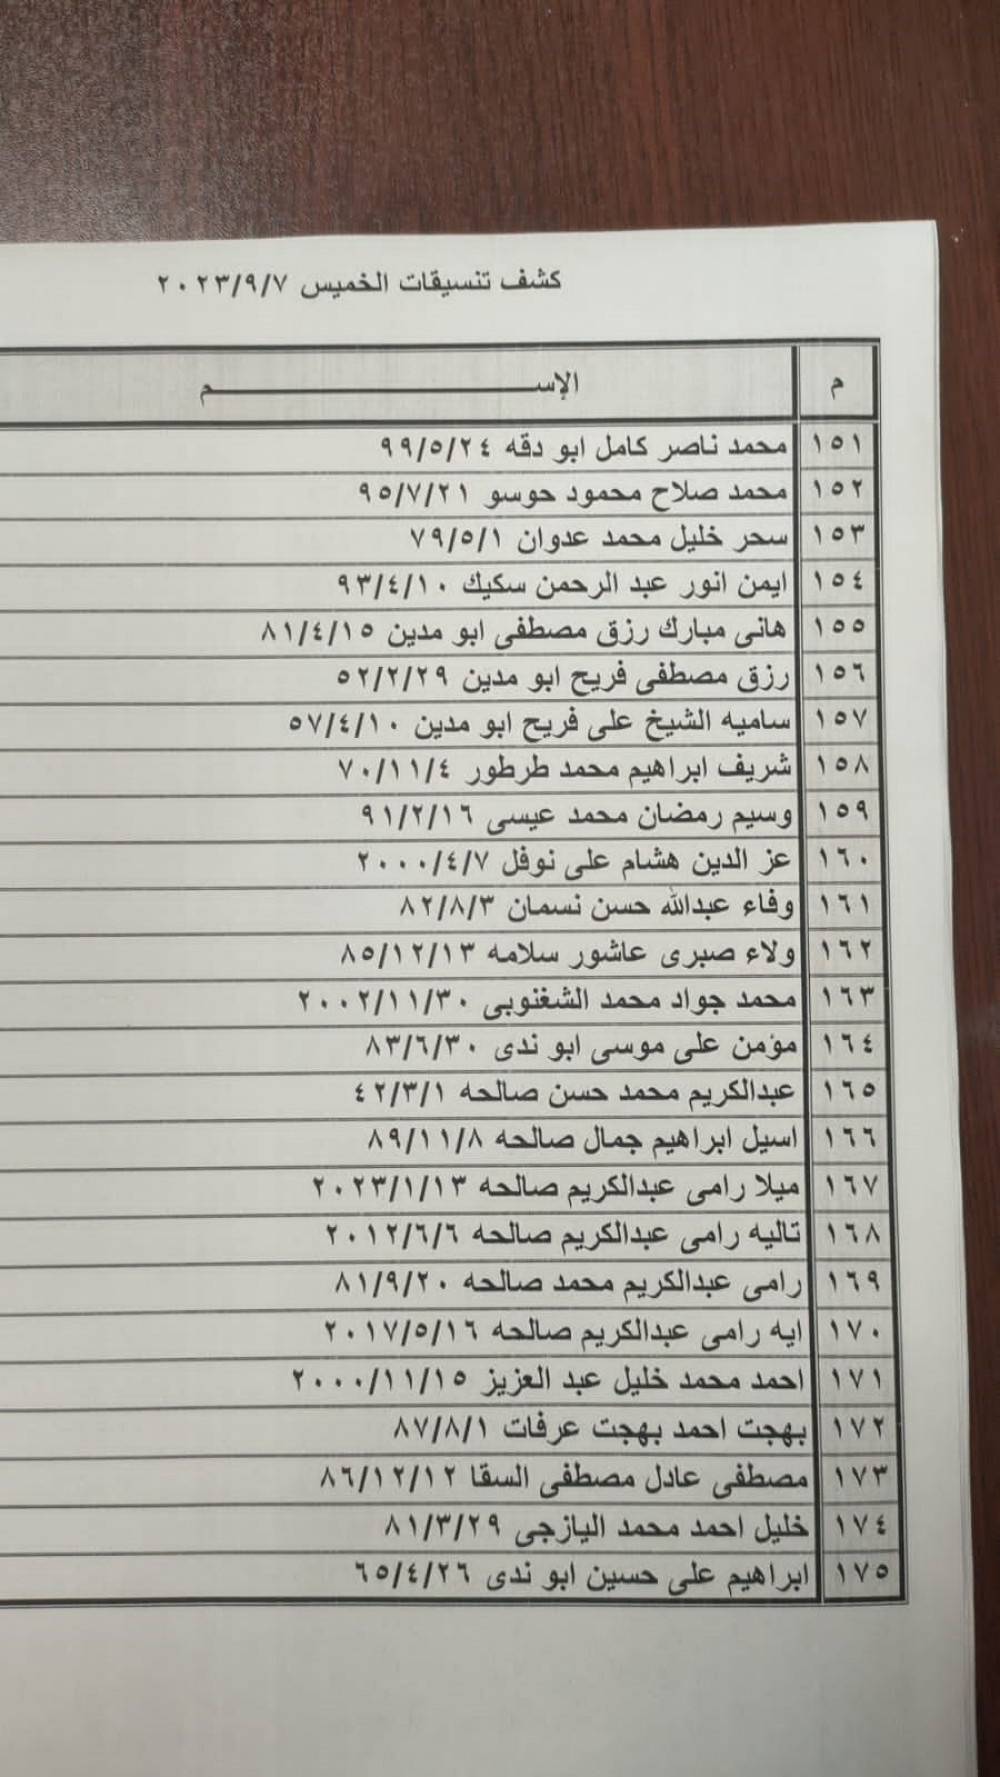 كشف تنسيقات الخميس ٢٠٢٣/٩/٧
م الإســـــــــــــــــــــم
١٥١ محمد ناصر كامل ابو دقه ٩٩/٥/٢٤
١٥٢ محمد صلاح محمود حوسو ٩٥/٧/٢١
١٥٣ سحر خليل محمد عدوان ٧٩/٥/١
١٥٤ ايمن انور عبد الرحمن سكيك ٩٣/٤/١٠
١٥٥ هانى مبارك رزق مصطفى ابو مدين ٨١/٤/١٥
١٥٦ رزق مصطفى فريح ابو مدين ٥٢/٢/٢٩
١٥٧ ساميه الشيخ على فريح ابو مدين ٥٧/٤/١٠
١٥٨ شريف ابراهيم محمد طرطور ٧٠/١١/٤
١٥٩ وسيم رمضان محمد عيسى ٩١/٢/١٦
١٦٠ عز الدين هشام على نوفل ٢٠٠٠/٤/٧
١٦١ وفاء عبدالله حسن نسمان ٨٢/٨/٣
١٦٢ ولاء صبرى عاشور سلامه ٨٥/١٢/١٣
١٦٣ محمد جواد محمد الشغنوبى ٢٠٠٢/١١/٣٠
١٦٤ مؤمن على موسى ابو ندى ٨٣/٦/٣٠
١٦٥ عبدالكريم محمد حسن صالحه ٤٢/٣/١
١٦٦ اسيل ابراهيم جمال صالحه ٨٩/١١/٨
١٦٧ ميلا رامى عبدالكريم صالحه ٢٠٢٣/١/١٣
١٦٨ تاليه رامى عبدالكريم صالحه ٢٠١٢/٦/٦
١٦٩ رامى عبدالكريم محمد صالحه ٨١/٩/٢٠
١٧٠ ايه رامى عبدالكريم صالحه ٢٠١٧/٥/١٦
١٧١ احمد محمد خليل عبد العزيز ٢٠٠٠/١١/١٥
١٧٢ بهجت احمد بهجت عرفات ٨٧/٨/١
١٧٣ مصطفى عادل مصطفى السقا ٨٦/١٢/١٢
١٧٤ خليل احمد محمد اليازجى ٨١/٣/٢٩
١٧٥ ابراهيم على حسين ابو ندى ٦٥/٤/٢٦